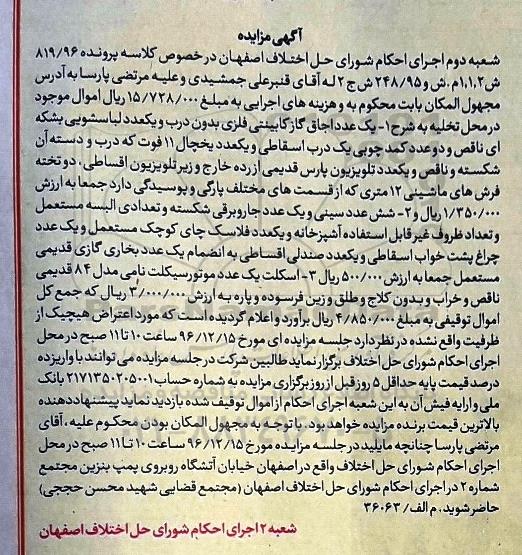 آگهی مزایده
شعبه دوم اجرای احکام شورای حل اختلاف اصفهان در خصوص کلاسه پرونده ۸۱۹/۹۶
ش۱،۱،۲م.ش و ۲۴۸/۹۵ش ج۲ له آقای قنبرعلی جمشیدی و علیه مرتضی پارسا به آدرس
مجهول المکان بابت محکوم به و هزینه های اجرایی به مبلغ ۱۵/۷۳۸/۰۰۰ریال اموال موجود
در محل تخلیه به شرح ۱- یک عدد اجاق گاز کابینتی فلزی بدون درب و یکعدد لباسشویی بشکه
ای ناقص و دو عدد کمد چوبی یک درب اسقاطی و یکعدد یخچال ۱۱ فوت که درب و دسته آن
شکسته و ناقص و یکعدد تلویزیون پارس قدیمی از رده خارج و زیر تلویزیون اقساطی، دو تخته
فرش های ماشینی ۱۲ متری که از قسمت های مختلف پارگی و پوسیدگی دارد جمعا به ارزش
۱/۳۵۰/۰۰۰ ریال و ۲- شش عدد سینی و یک عدد جاروبرقی شکسته و تعدادی البسه مستعمل
و تعداد ظروف غیر قابل استفاده آشپزخانه و یکعدد فلاسک چای کوچک مستعمل و یک عدد
چراغ پشت خواب اسقاطی و یکعدد صندلی اقساطی به انضمام یک عدد بخاری گازی قدیمی
مستعمل جمعا به ارزش ۵۰۰/۰۰۰ ریال ۳- اسکلت یک عدد موتورسیکلت نامی مدل ۸۴ قدیمی
ناقص و خراب و بدون کلاج و طلق و زین فرسوده و پاره به ارزش ۳/۰۰۰/۰۰۰ ریال که جمع کل
اموال توقیفی به مبلغ ۴/۸۵۰/۰۰۰ ریال برآورد و اعلام گردیده است که مورد اعتراض هیچیک از
ظرفیت واقع نشده در نظر دارد جلسه مزایده ای مورخ ۹۶/۱۲/۱۵ ساعت ۱۰ تا ۱۱ صبح در محل
اجرای احکام شورای حل اختلاف برگزار نماید طالبین شرکت در جلسه مزایده می توانند با واریز ده
درصد قیمت پایه حداقل ۵ روز قبل از روز برگزاری مزایده به شماره حساب ۲۱۷۱۳۵۰۲۰۵۰۰۱ بانک
ملی و ارایه فیش آن به این شعبه اجرای احکام از اموال توقیف شده بازدید نماید پیشنهاددهنده
بالاترین قیمت برنده مزایده خواهد بود. با توجه به مجهول المکان بودن محکوم علیه، آقای
مرتضی پارسا چنانچه مایلید در جلسه مزایده مورخ ۹۶/۱۲/۱۵ ساعت ۱۰ تا ۱۱ صبح در محل
اجرای احکام شورای حل اختلاف واقع در اصفهان خیابان آتشگاه روبروی پمپ بنزین مجتمع
شماره ۲ در اجرای احکام شورای حل اختلاف اصفهان (مجتمع قضایی شهید محسن حججی)
حاضر شوید. م الف/ ۳۶۰۶۳
شعبه ۲ اجرای احکام شورای حل اختلاف اصفهان